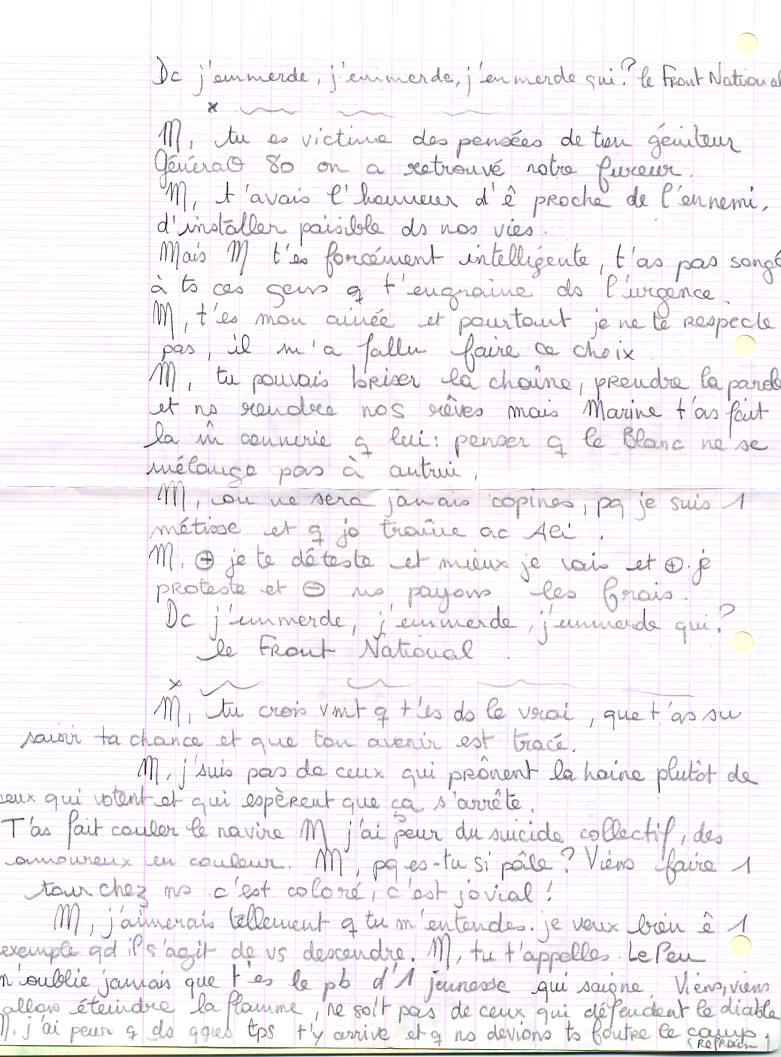 Dc j'emmerde, j'emmerde, j'emmerde qui? le Front National
M, tu es victime des pensées de ton géniteur
Générat° 80 on a retrouvé notre fureur.
M, t'avais l'honneur d'ê proche de l'ennemi,
d'installer paisible ds nos vies.
Mais M t'es forcément intelligente, t'as pas songé
à ts ces gens q t'engraine ds l'urgence.
M, t'es mon ainée et pourtant je ne te respecte
pas, il m'a fallu faire ce choix.
M, tu pouvais briser la chaîne, prendre la parole
et ns rendre nos rêves mais Marine t'as fait
la m̂ connerie q lui: penser q le Blanc ne se
mélange pas à autrui.
M, on ne sera jamais copines, pq je suis 1
métisse et q je traîne ac
M, ⊕ je te déteste et mieux je vais et ⊕ je
proteste et ⊖ ns payons les frais.
Dc j'emmerde, j'emmerde, j'emmerde qui?
le Front National.
M, tu crois vmt q t'es ds le vrai, que t'as su
saisir ta chance et que ton avenir est tracé.
M, j'suis pas de ceux qui prônent la haine plutôt de
ceux qui votent et qui espèrent que ça s'arrête.
T'as fait couler le navire M j'ai peur du suicide collectif, des
amoureux en couleur. M, pq es-tu si pâle? Viens faire 1
tour chez ns c'est coloré, c'est jovial!
M, j'aimerais tellement q tu m'entendes. je veux bien ê 1
exemple qd il s'agit de vs descendre. M, tu t'appelles Le Pen
n'oublie jamais que t'es le pb d'1 jeunesse qui saigne. Viens, viens
allons éteindre la flamme, ne soit pas de ceux qui défendent le diable
M, j'ai peur q ds qques tps t'y arrive et q ns devions ts foutre le camp.
(Refrain)